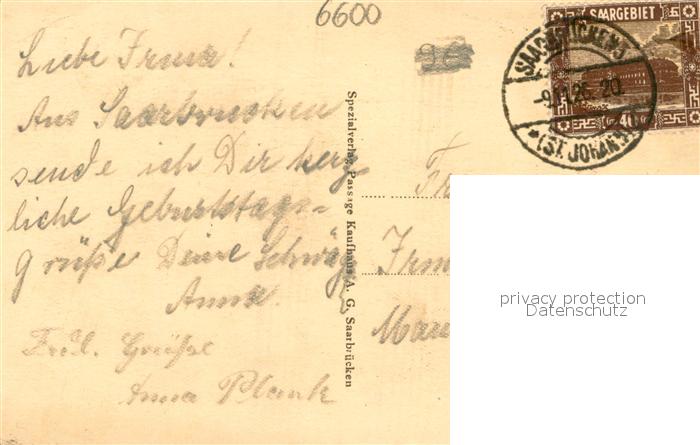 6600
SAARGEBIET
SAARBRÜCKEN 3
-9.11.25. 20
40
*(ST. JOHANN)
Liebe Irma!
Aus Saarbrücken
sende ich Dir herz
liche Geburtstags-
grüße Deine Schwäg
Anna.
Frdl. Grüße
Anna Plank
Spezialverlag Passage Kaufhaus A. G. Saarbrücken
Fr
Irm
Man
privacy protection
Datenschutz